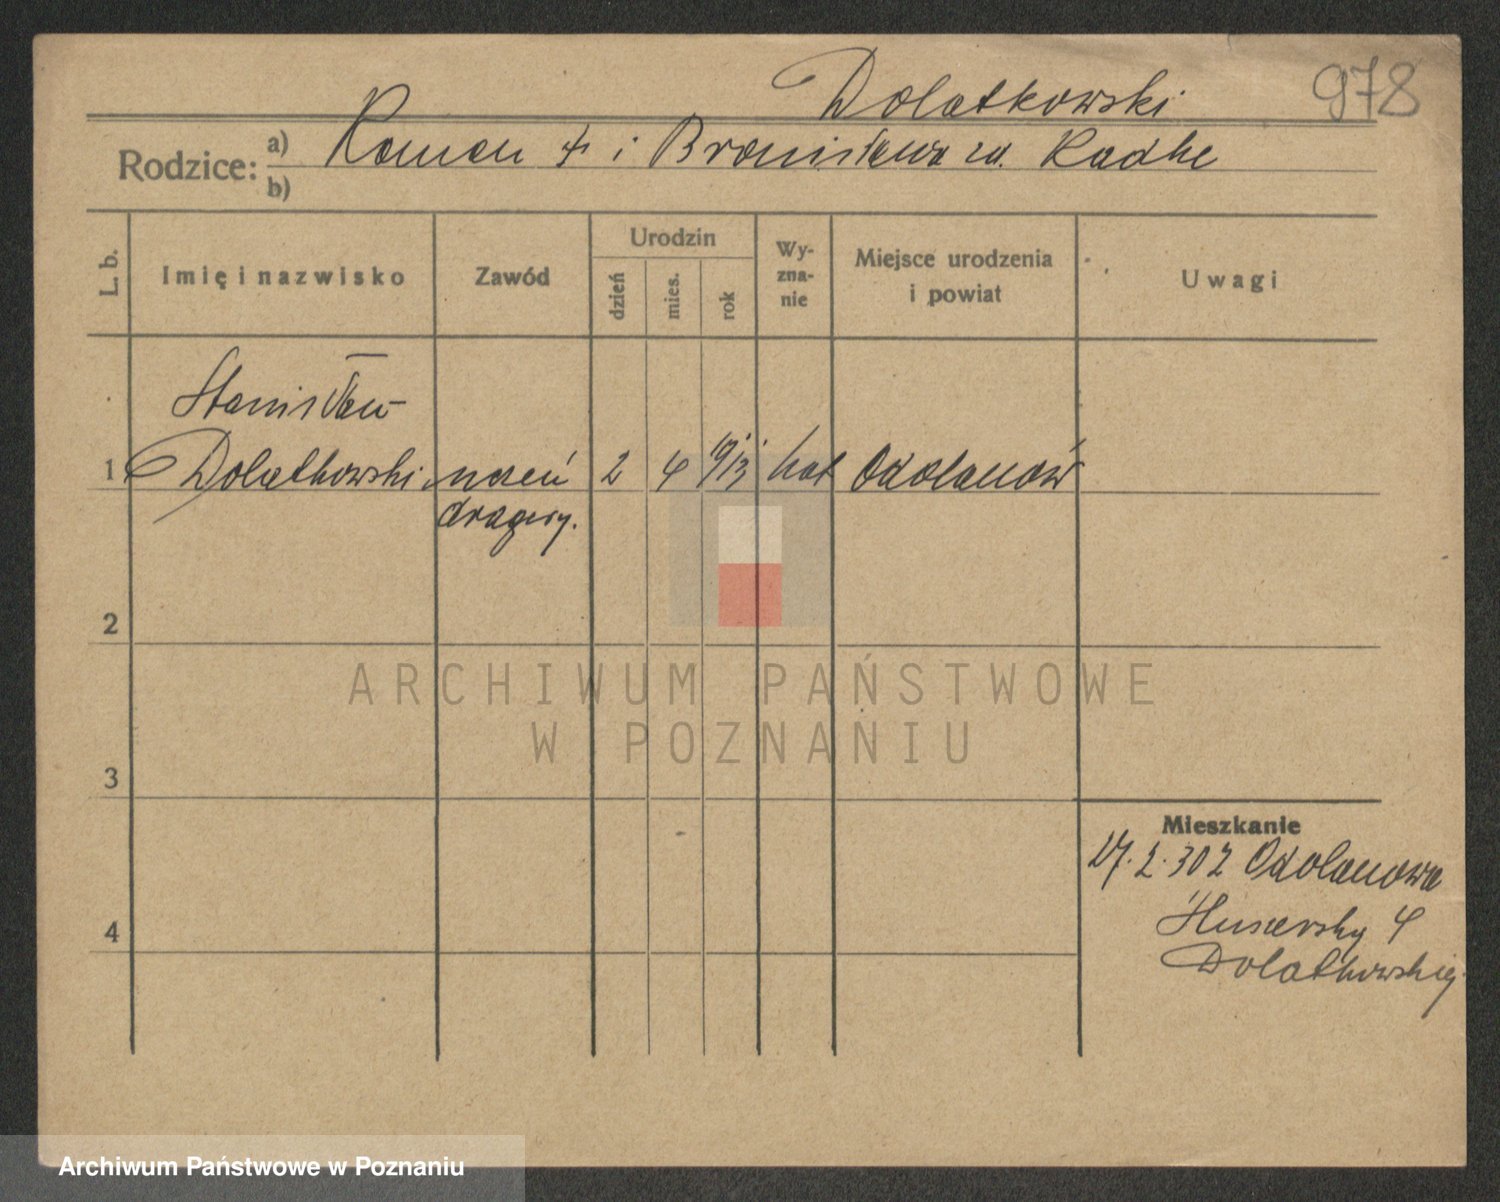 Dolatkowski 978
Rodzice: a) Roman i Bronisława Radke
b)
L. b. Imię i nazwisko Zawód Urodzin dzień mies. rok Wy-zna-nie Miejsce urodzenia i powiat Uwagi
Stanisław
1 Dolatkowski uczeń 2 4 1913 kat Odolanów
drogery.
2
ARCHIWUM PAŃSTWOWE
W POZNANIU
3
Mieszkanie
17. 2. 30 z Odolanowa
4
Dolatkowskiej
Archiwum Państwowe w Poznaniu